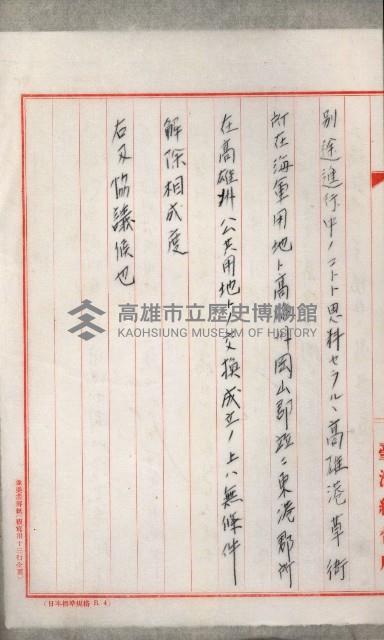 別途進行中ノコトト思料セラルヽ高雄港草衙
所在海軍用地ト高雄州岡山郡並ニ東港郡所
在高雄州公共用地トノ交換成立ノ上ハ無條件
解除相成度
右及協議候也
高雄市立歷史博物館
KAOHSIUNG MUSEUM OF HISTORY
(日本標準規格 B. 4)